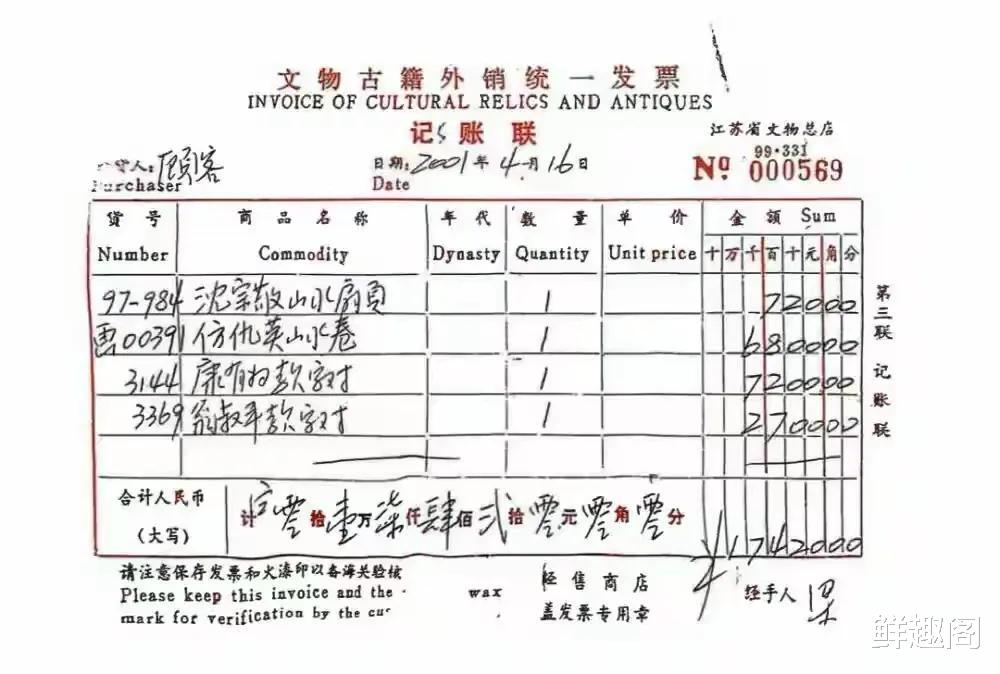 文物古籍外销统一发票
INVOICE OF CULTURAL RELICS AND ANTIQUES
记账联
江苏省文物总店
99·331
顾客
Purchaser
日期: 2001年4月16日
Date
Nº 000569
货号 商品名称 年代 数量 单价 金额 Sum
Number Commodity Dynasty Quantity Unit price 十万千百十元角分
97-984 沈宗敬山水扇页 1 72000
画00391 仿仇英山水卷 1 680000
3144 康有为款字对 1 720000
3369 翁叔平款字对 1 270000
合计人民币
(大写)
计 零拾壹万柒仟肆佰贰拾零元零角零分
¥1742000
第三联 记账联
请注意保存发票和火漆印以备海关验核
Please keep this invoice and the
wax
mark for verification by the cus
经售商店
盖发票专用章
经手人
鲜趣阁